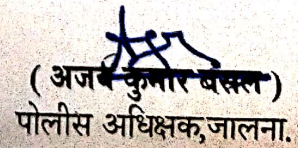 ( अजय कुमार बंसल )
पोलीस अधिक्षक,जालना.